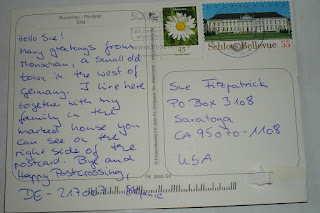 Monschau / Nordeifel
Eifel
Hello Sue!
Many greetings from
Monschau, a small old
town in the west of
Germany. I live here
together with my
family in the
market house you
can see on the
right side of the
postcard. Bye and
Happy Postcrossing,
DE-
45
Schloss Bellevue 55
Sue Fitzpatrick
PO Box 3108
Saratoga
CA 95070-1108
USA